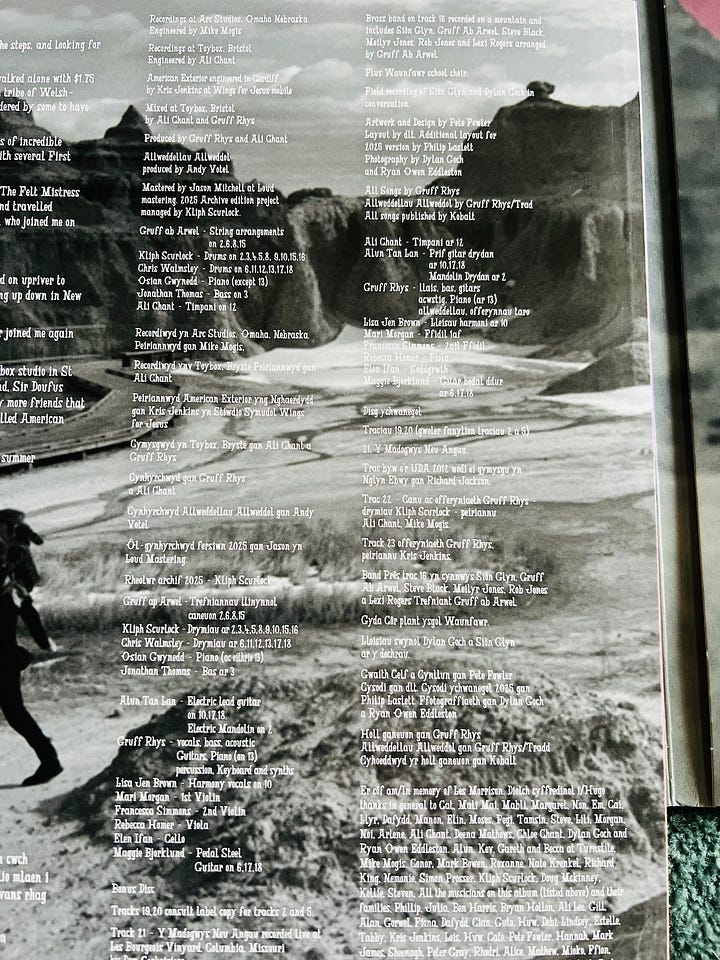 he steps, and looking for
walked alone with $1.75
tribe of Welsh-
dered by some to have
s of incredible
ith several First
The Felt Mistress
nd travelled
who joined me on
d on upriver to
ng up down in New
r joined me again
box studio in St
nd, Sir Doufus
y more friends that
lled American
summer
n cwch
io mlaen i
vans rhag
Recordings at Arc Studios, Omaha Nebraska.
Engineered by Mike Mogis
Recordings at Toybox, Bristol
Engineered by Ali Chant
American Exterior engineered in Cardiff
by Kris Jenkins at Wings for Jesus mobile
Mixed at Toybox, Bristol
by Ali Chant and Gruff Rhys
Produced by Gruff Rhys and Ali Chant
Allweddellau Allweddol
produced by Andy Votel
Mastered by Jason Mitchell at Loud
mastering. 2025 Archive edition project
managed by Kliph Scurlock.
Gruff ab Arwel - String arrangements
on 2.6.8.15
Kliph Scurlock - Drums on 2.3.4.5.8. 9.10.15.16
Chris Walmsley - Drums on 6.11.12.13.17.18
Osian Gwynedd - Piano (except 13)
Jonathan Thomas - Bass on 3
Ali Chant - Timpani on 12
Recordiwyd yn Arc Studios, Omaha, Nebraska.
Peiriannwyd gan Mike Mogis,
Recordiwyd ynv Toybox, Bryste Peiriannwyd gan
Ali Chant
Peiriannwyd American Exterior yng Nghaerdydd
gan Kris Jenkins yn Stiwdio Symudol Wings
for Jesus
Cymysgwyd yn Toybox, Bryste gan Ali Chant a
Gruff Rhys
Cynhyrchwyd gan Gruff Rhys
a Ali Chant
Cynhyrchwyd Allweddellau Allweddol gan Andy
Votel
Ôl-gynhyrchwyd fersiwn 2025 gan Jason yn
Loud Mastering.
Rheolwr archif 2025 - Kliph Scurlock
Gruff ap Arwel - Trefniannau llinynnol
caneuon 2.6.8.15
Kliph Scurlock - Drymiau ar 2.3.4.5.8.9.10.15.16
Chris Walmsley - Drymiau ar 6.11.12.13.17.18
Osian Gwynedd - Piano (ac eithrio 13)
Jonathan Thomas - Bas ar 3
Alun Tan Lan - Electric lead guitar
on 10.17.18.
Electric Mandolin on 2
Gruff Rhys - vocals, bass, acoustic
Guitars, Piano (on 13)
percussion, Keyboard and synths
Lisa Jen Brown - Harmony vocals on 10
Mari Morgan - 1st Violin
Francesca Simmons - 2nd Violin
Rebecca Homer - Viola
Elen Ifan - Cello
Maggie Bjorklund - Pedal Steel
Guitar on 6.17.18
Bonus Disc
Tracks 19.20 consult label copy for tracks 2 and 5.
Track 21 - Y Madogwys Neu Angau recorded live at
Les Bourgeois Vinyard, Columbia, Missouri
Brass band on track 16 recorded on a mountain and
includes Siôn Glyn, Gruff Ab Arwel, Steve Black,
Meilyr Jones, Rob Jones and Lexi Rogers arranged
by Gruff Ab Arwel.
Plus Waunfawr school choir.
Field recording of Siôn Glyn and Dylan Goch in
conversation.
Artwork and Design by Pete Fowler
Layout by dlt. Additional layout for
2025 version by Philip Laslett
Photography by Dylan Goch
and Ryan Owen Eddleston
All Songs by Gruff Rhys
Allweddellau Allweddol by Gruff Rhys/Trad
All songs published by Kobalt
Ali Chant - Timpani ar 12
Alun Tan Lan - Prif gitar drydan
ar 10.17.18
Mandolin Drydan ar 2
Gruff Rhys - llais, bas, gitars
acwstig, Piano (ar 13)
allweddellau, offerynnau taro
Lisa Jen Brown - Lleisau harmoni ar 10
Mari Morgan - Ffidil 1af
Francesca Simmons - 2ail Ffidil
Rebecca Homer - Fiola
Elen Ifan - Soddgrwth
Maggie Bjorklund - Gitâr bedal ddur
ar 6.17.18
Disg ychwanegol
Traciau 19.20 (gweler fanylion traciau 2 a 5)
21. Y Madogwys Neu Angau.
Trac byw o'r UDA 2012 wedi ei gymysgu yn
Nglyn Ebwy gan Richard Jackson.
Trac 22 - Canu ac offeryniaeth Gruff Rhys -
drymiau Kliph Scurlock - peiriannu
Ali Chant, Mike Mogis.
Track 23 offeryniaeth Gruff Rhys,
peiriannu Kris Jenkins.
Band Prês trac 16 yn cynnwys Siôn Glyn, Gruff
Ab Arwel, Steve Black, Meilyr Jones, Rob Jones
a Lexi Rogers Trefniant Gruff ab Arwel.
Gyda Côr plant ysgol Waunfawr.
Lleisiau swynol Dylan Goch a Siôn Glyn
ar y dechrau.
Gwaith Celf a Cynllun gan Pete Fowler
Cysodi gan dlt. Cysodi ychwanegol 2025 gan
Philip Laslett Pfotograffiaeth gan Dylan Goch
a Ryan Owen Eddleston
Holl ganeuon gan Gruff Rhys
Allweddellau Allweddol gan Gruff Rhys/Tradd
Cyhoeddwyd yr holl ganeuon gan Kobalt
Er cof am/In memory of Les Morrison. Diolch cyffredinol i/Huge
thanks in general to Cat, Maki Mai, Mabli, Margaret, Non, Em, Cai,
Llyr, Dafydd, Manon, Elin, Moses, Pegi, Tamsin, Steve, Lili, Morgan,
Noi, Arlene, Ali Chant, Deena Mathews, Chloe Chant, Dylan Goch and
Ryan Owen Eddleston. Alun, Kev, Gareth and Becca at Turnstile,
Mike Mogis, Conor, Mark Bowen, Roxanne, Nate Krenkel, Richard
King, Nemonie, Simon Prosser, Kliph Scurlock, Doug Mckinney,
Kellie, Steven, All the musicians on this album (listed above) and their
families, Phillip, Julia, Ben Harris, Bryan Hollon, Ali Lee, Gill,
Alan, Gorwel, Fiona, Dafydd, Cian, Guto, Huw, Debi, Lindsey, Estelle,
Tabby, Kris Jenkins, Lois, Huw, Catê, Pete Fowler, Hannah, Mark
James, Sheenagh, Peter Gray, Rhodri, Alice, Mathew, Mieko, Ffion,